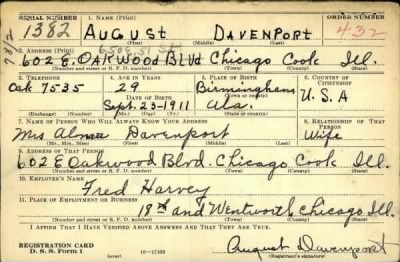 SERIAL NUMBER 1. NAME (Print) ORDER NUMBER
1382 AUGUST DAVENPORT 432
(First) (Middle) (Last)
2. ADDRESS (Print)
602 E. OAKWOOD BLVD Chicago Cook Ill.
(Number and street or R. F. D. number) (Town) (County) (State)
3. TELEPHONE 4. AGE IN YEARS 5. PLACE OF BIRTH 6. COUNTRY OF CITIZENSHIP
Oak 7535 29 Birmingham U.S.A
DATE OF BIRTH (Town or county)
Sept. 23-1911 Ala.
(Exchange) (Number) (Mo.) (Day) (Yr.) (State or country)
7. NAME OF PERSON WHO WILL ALWAYS KNOW YOUR ADDRESS 8. RELATIONSHIP OF THAT PERSON
Mrs Davenport Wife
(Mr., Mrs., Miss) (First) (Middle) (Last)
9. ADDRESS OF THAT PERSON
602 E Oakwood Blvd. Chicago Cook Ill.
(Number and street or R. F. D. number) (Town) (County) (State)
10. EMPLOYER'S NAME
Fred Harvey
11. PLACE OF EMPLOYMENT OR BUSINESS
18th and Wentworth Chicago Ill.
(Number and street or R. F. D. number) (Town) (County) (State)
I AFFIRM THAT I HAVE VERIFIED ABOVE ANSWERS AND THAT THEY ARE TRUE.
REGISTRATION CARD
D. S. S. Form 1 (over) 16-17105
August Davenport
(Registrant's signature)